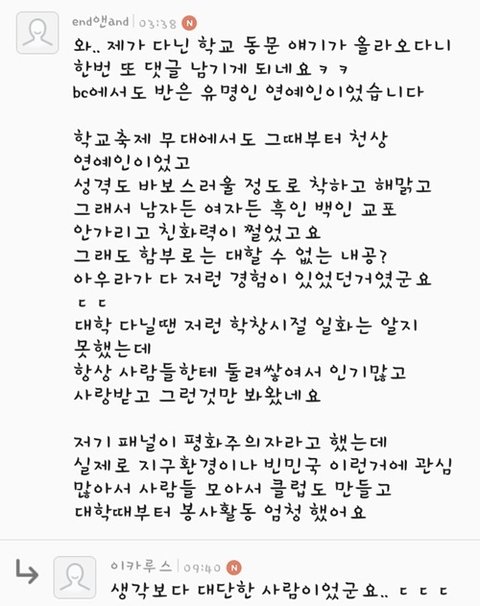 end앤and | 03:38 N
와.. 제가 다닌 학교 동문 얘기가 올라오다니
한번 또 댓글 남기게 되네요ㅋㅋ
bc에서도 반은 유명인 연예인이었습니다
학교축제 무대에서도 그때부터 천상
연예인이었고
성격도 바보스러울 정도로 착하고 해맑고
그래서 남자든 여자든 흑인 백인 교포
안가리고 친화력이 쩔었고요
그래도 함부로는 대할 수 없는 내공?
아우라가 다 저런 경험이 있었던거였군요
ㄷㄷ
대학 다닐땐 저런 학창시절 일화는 알지
못했는데
항상 사람들한테 둘려쌓여서 인기많고
사랑받고 그런것만 봐왔네요
저기 패널이 평화주의자라고 했는데
실제로 지구환경이나 빈민국 이런거에 관심
많아서 사람들 모아서 클럽도 만들고
대학때부터 봉사활동 엄청 했어요
이카루스 | 09:40 N
생각보다 대단한 사람이었군요.. ㄷㄷㄷ